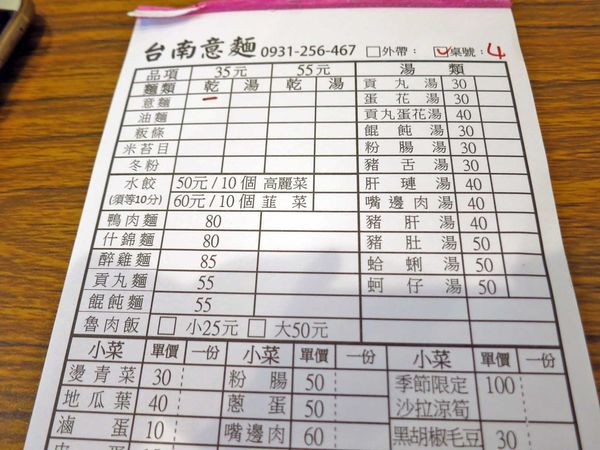 台南意麵 0931-256-467 □外帶: ☑桌號: 4
品項 35元 55元 湯類
麵類 乾 湯 乾 湯 貢丸湯 30
意麵 蛋花湯 30
油麵 貢丸蛋花湯 40
粄條 餛飩湯 30
米苔目 粉腸湯 30
冬粉 豬舌湯 30
水餃 50元/10個 高麗菜 肝連湯 40
(須等10分) 60元/10個 韮菜 嘴邊肉湯 40
鴨肉麵 80 豬肝湯 40
什錦麵 80 豬肚湯 50
醉雞麵 85 蛤蜊湯 50
貢丸麵 55 蚵仔湯 50
餛飩麵 55
魯肉飯 □ 小25元 □ 大50元
小菜 單價 一份 小菜 單價 一份 小菜 單價 一份
燙青菜 30 粉腸 50 季節限定 100
地瓜葉 40 蔥蛋 50 沙拉涼筍
滷蛋 10 嘴邊肉 60 黑胡椒毛豆 30